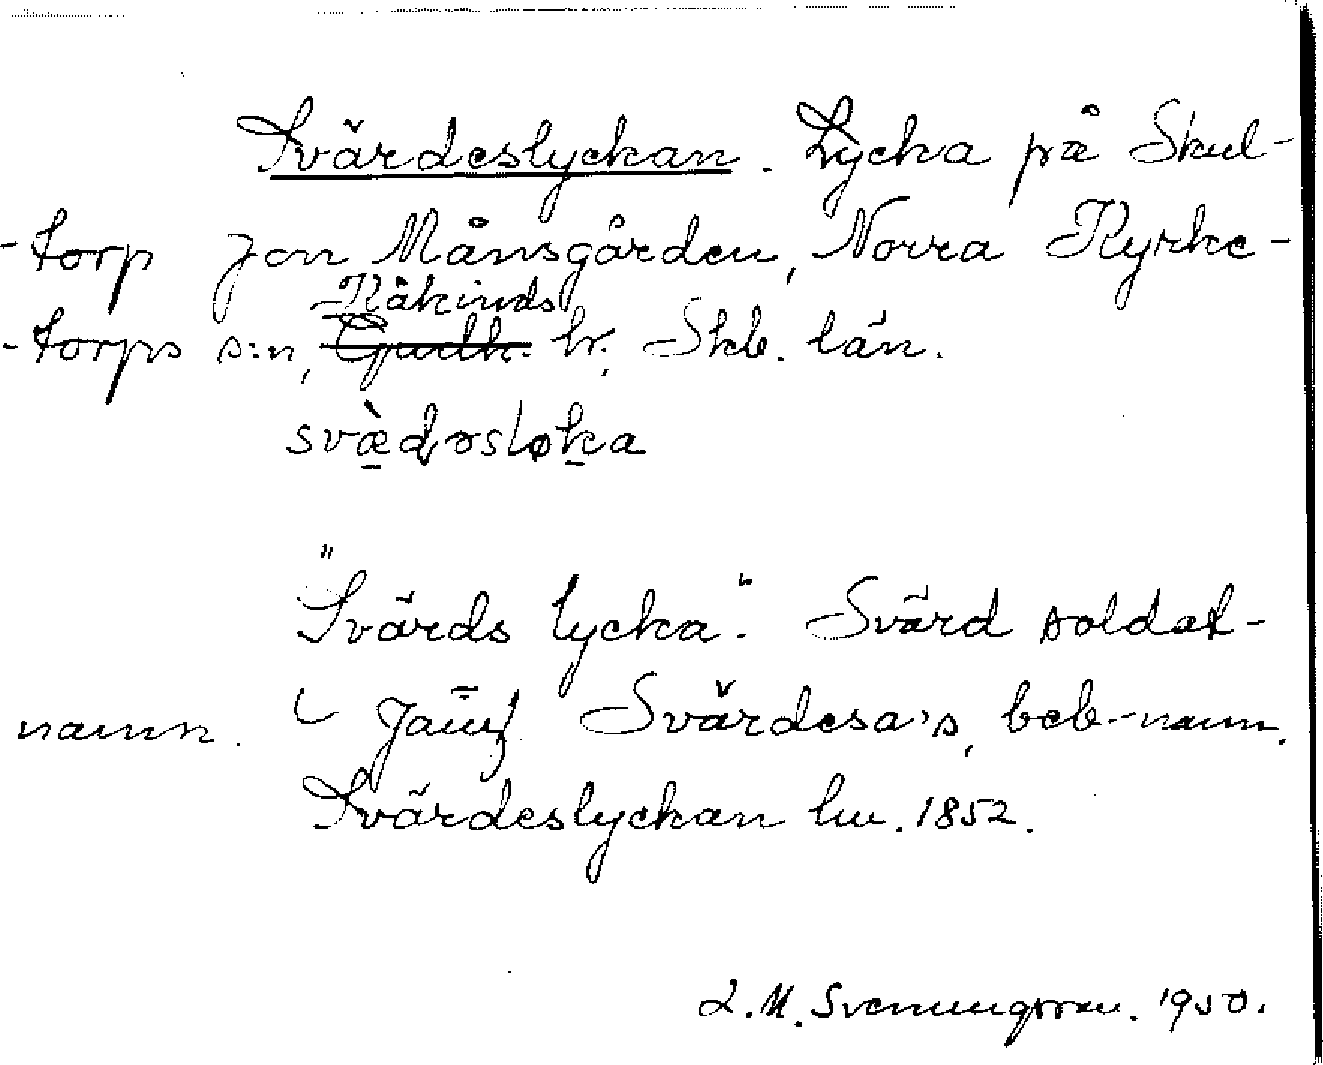 Svärdeslyckan. Lycka på Skul-
-torp Jon Månsgården, Norra Kyrke-
Kåkinds
-torps s:n, Gudh. hr, Skb. län.
svæ̀dəsløka
"Svärds lycka". Svärd soldat-
namn. Jämf Svärdesa:s, beb-namn.
Svärdeslyckan lm. 1852.
L. M. Svenungsson. 1950.